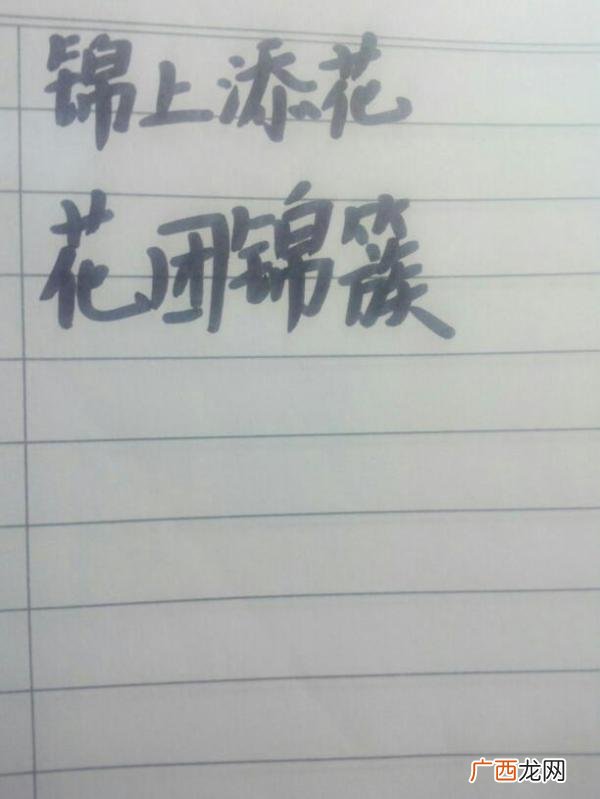 锦上添花
花团锦簇
广西龙网